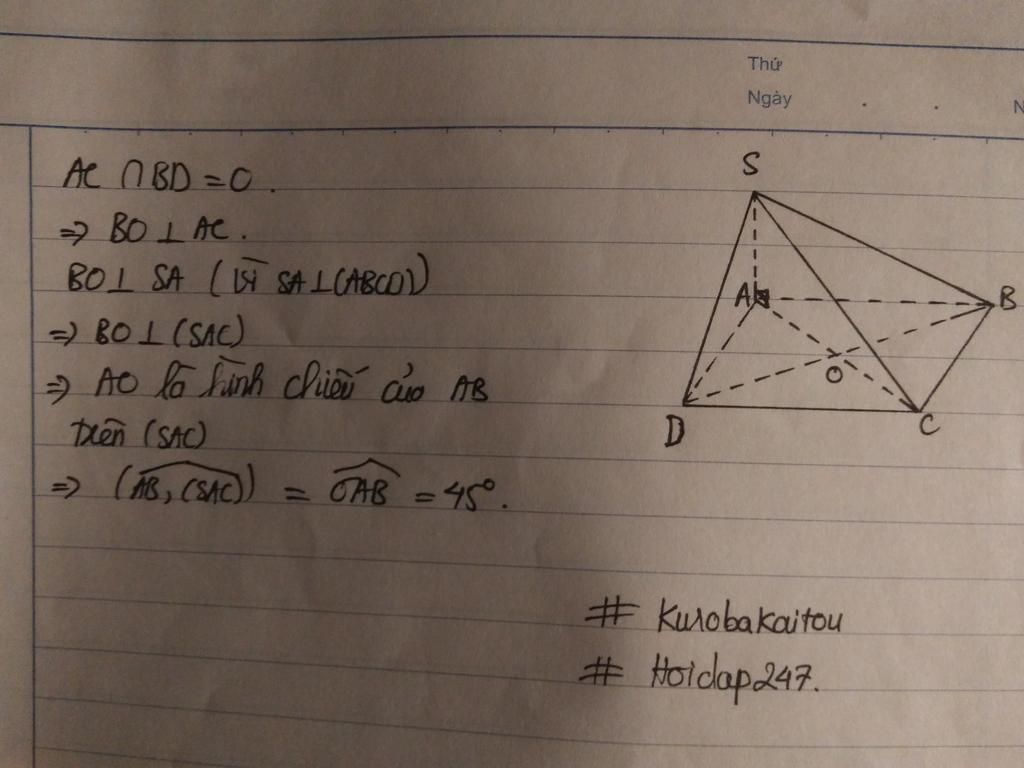 Thứ
Ngày
N
AC ∩ BD = O.
⇒ BO ⊥ AC.
BO ⊥ SA (Vì SA ⊥ (ABCD))
⇒ BO ⊥ (SAC)
⇒ AO là hình chiếu của AB
trên (SAC)
⇒ (AB, (SAC)) = OAB = 45°.
S
A
B
O
D
C
# Kurobakaitou
# Hoidap247.